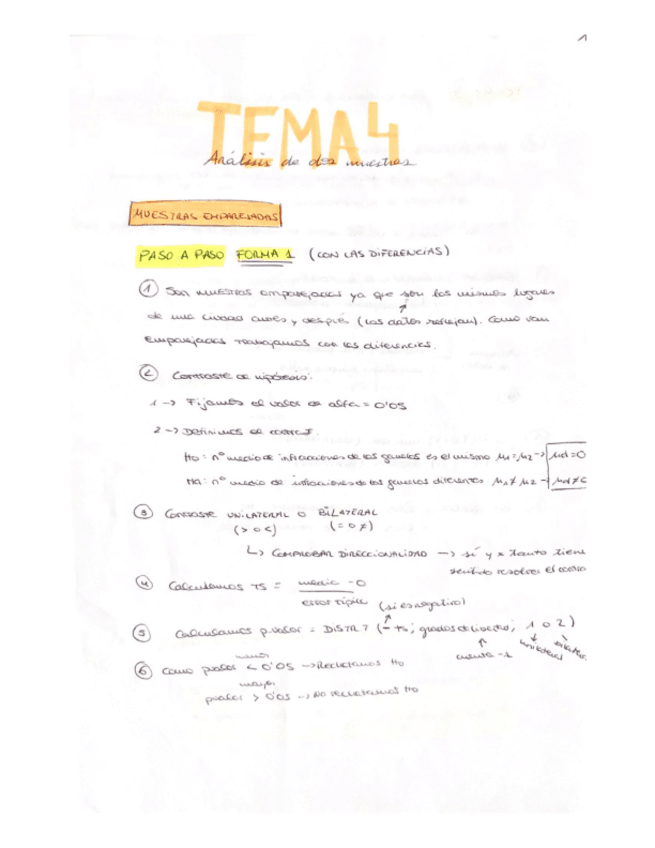 1
TEMA 4
Análisis de dos muestras
MUESTRAS EMPAREJADAS
PASO A PASO FORMA 1 (CON LAS DIFERENCIAS)
① Son muestras emparejadas ya que son los mismos lugares
de una ciudad antes y después (los datos reflejan). Como van
emparejados trabajamos con las diferencias.
② Contraste de hipótesis:
1 -> Fijamos el valor de alfa = 0'05
2 -> Definimos el
Ho: nº medio de infracciones de los es el mismo μ1 = μ2 -> μd = 0
Ha: nº medio de infracciones de los diferentes μ1 ≠ μ2 - μd ≠ 0
③ CONTRASTE UNILATERAL O BILATERAL
(> o <) (= o ≠)
↳ COMPROBAR DIRECCIONALIDAD -> sí y x tanto tiene
sentido resolver el
④ Calculamos TS = media - 0
error típico (si es negativo)
⑤ Calculamos p.valor = DISTR T (- ts; grados de libertad; 1 o 2)
cuenta - 1 unilateral
menor
⑥ Como pvalor < 0'05 -> Rechazamos Ho
mayor
pvalor > 0'05 -> NO rechazamos Ho